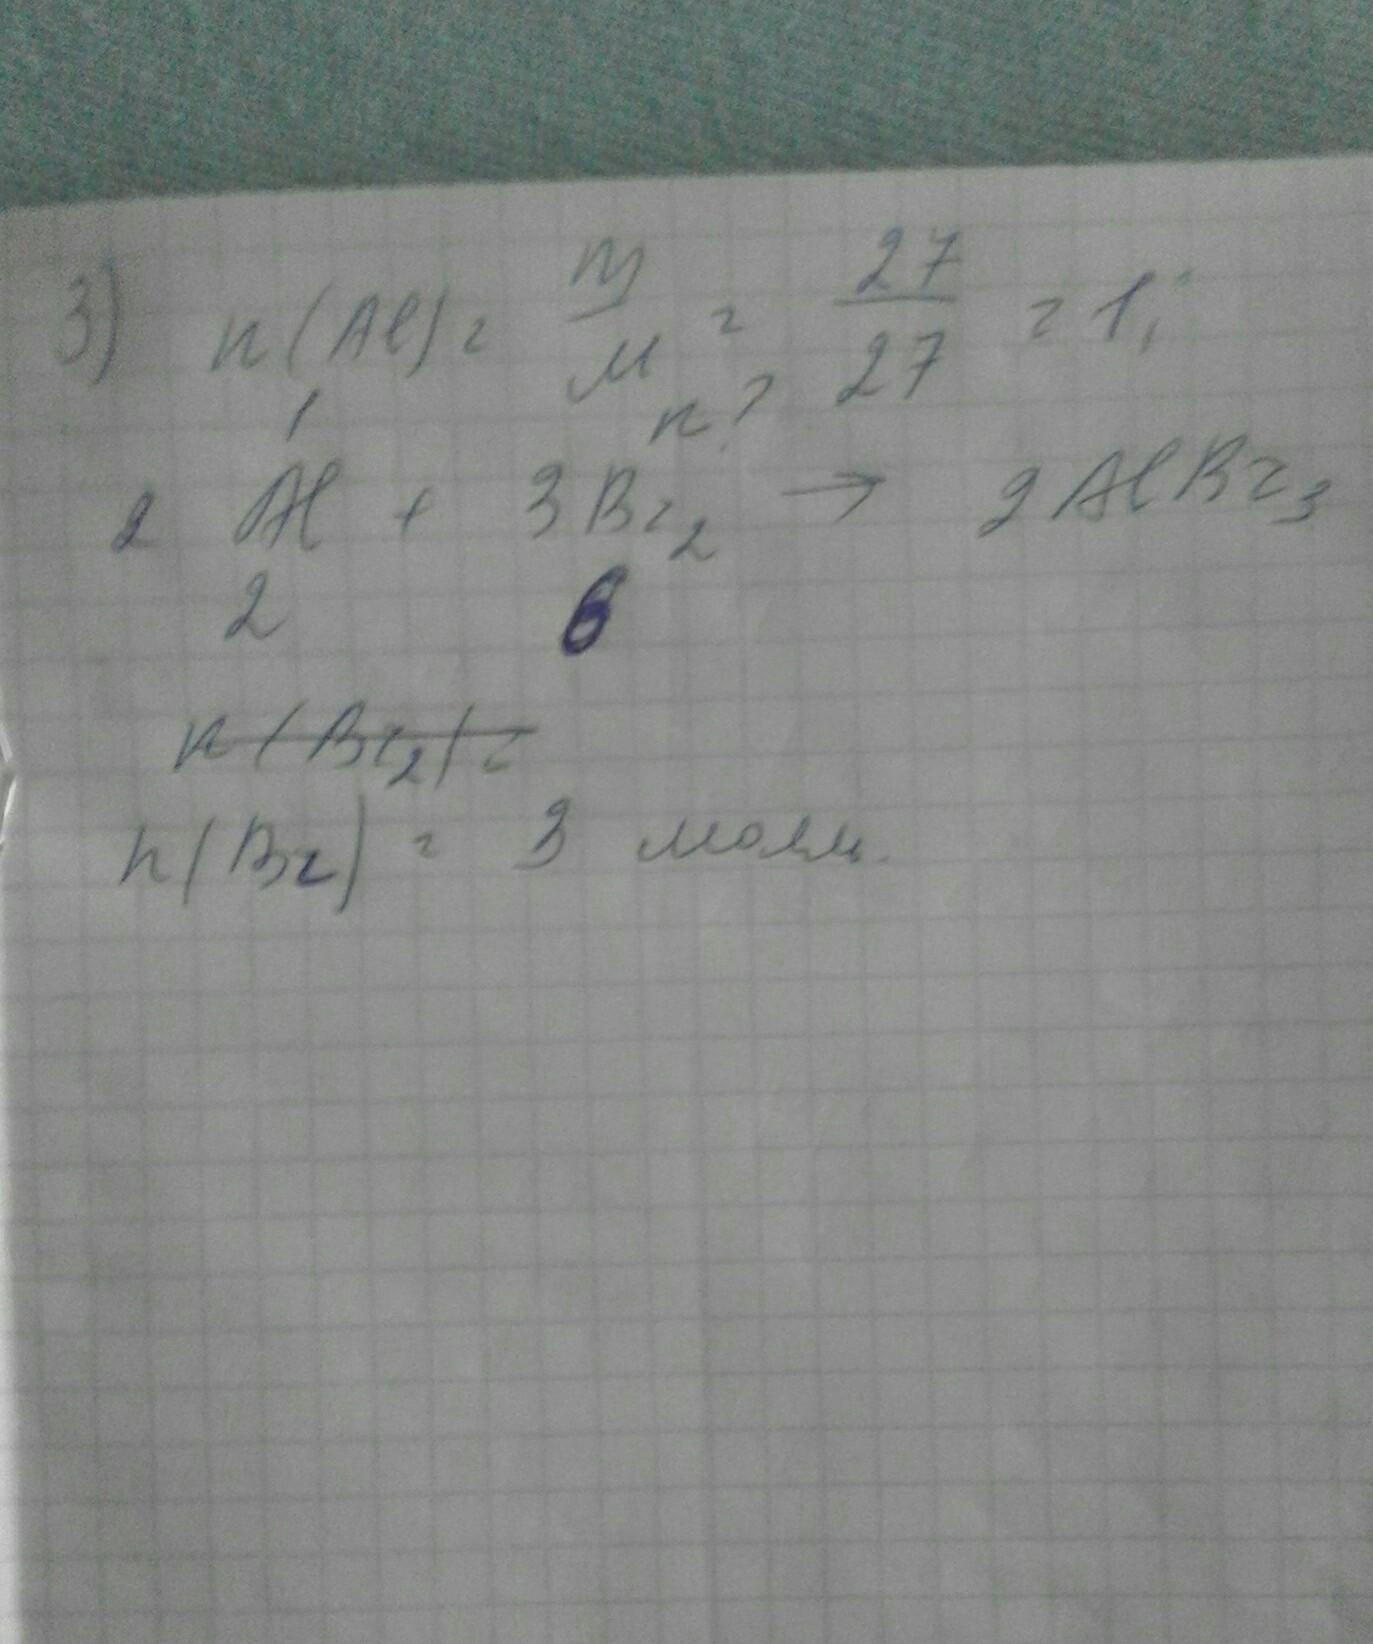 3) n(Al) = m/M = 27/27 = 1;
1 n?
2 Al + 3Br₂ → 2AlBr₃
2 6
n(Br₂) =
n(Br) = 3 моль.